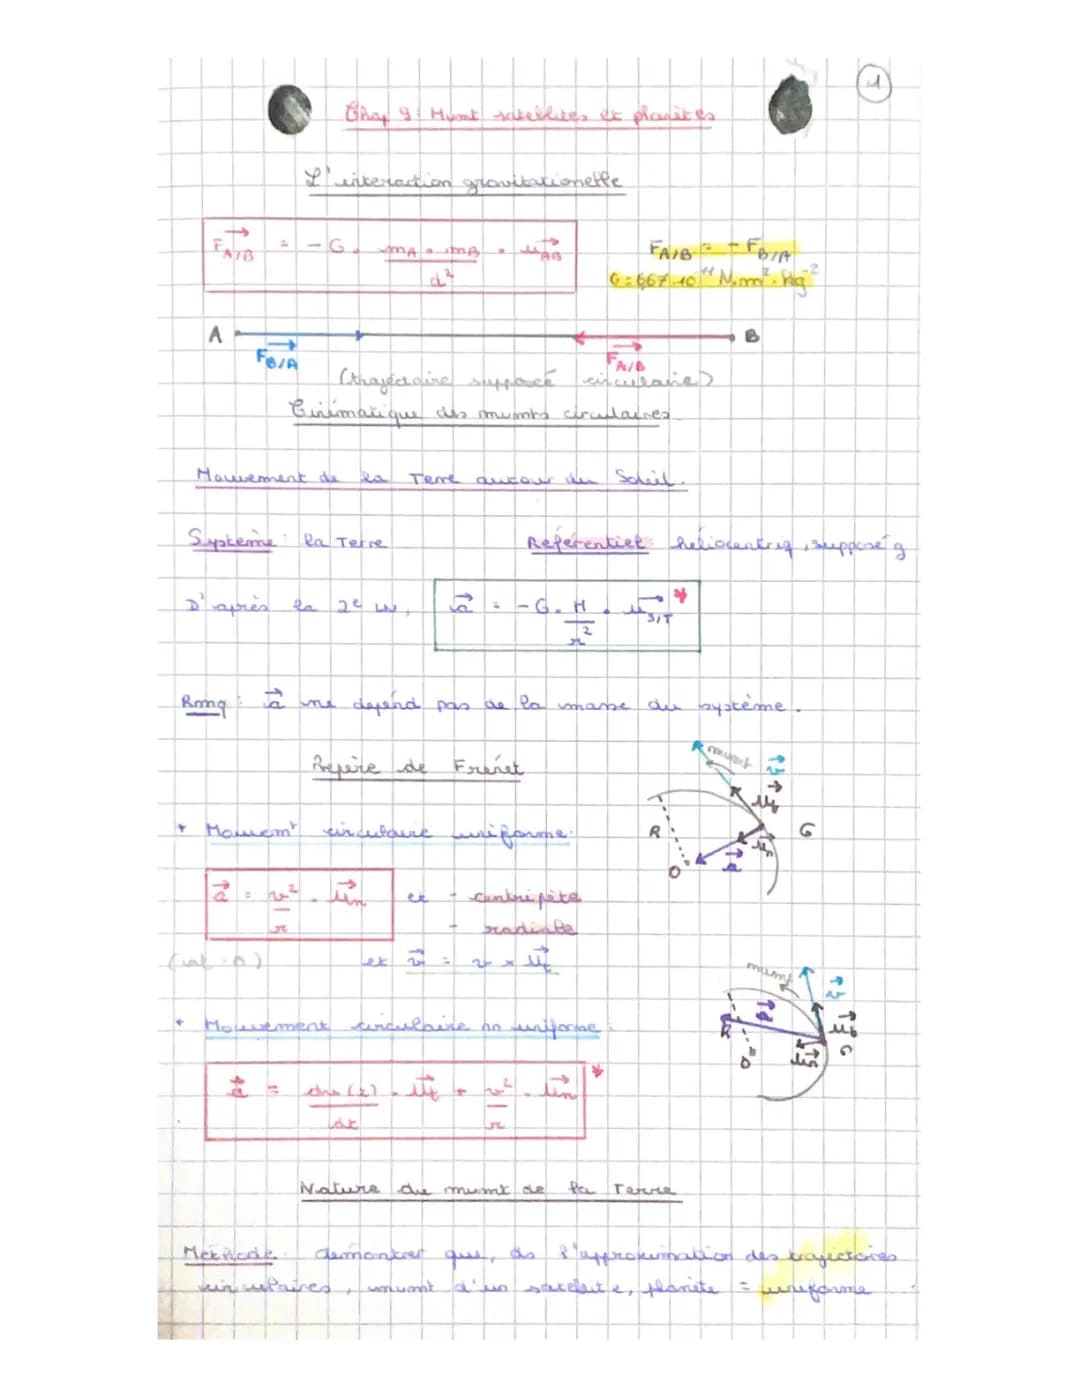 1
Chap 9 : Mvmt satellites et planètes
L'interaction gravitationelle
F⃗A/B = - G . mA . mB / d² . u⃗AB
FA/B = - FB/A
G = 6,67.10⁻¹¹ N.m².kg⁻²
A B
F⃗B/A F⃗A/B
(trajectoire supposée circulaire)
Cinématique des mvmts circulaires
Mouvement de la Terre autour du Soleil.
Système : la Terre Référentiel héliocentriq, supposé g
D'après la 2e LN, a⃗ = - G . M / r² . u⃗S/T *
Rmq : a⃗ ne dépend pas de la masse du système.
Repère de Frénet
+ Mouvemt circulaire uniforme:
a⃗ = v² / r . u⃗n et - centripète
- radiale
et v⃗ = v × u⃗t
mvmt v⃗ u⃗t G R u⃗n a⃗ O
+ Mouvement circulaire nn uniforme :
a⃗ = dv(t) / dt . u⃗t + v² / r . u⃗n *
mvmt v⃗ u⃗t G R a⃗ u⃗n O
Nature du mvmt de la Terre
Méthode : démontrer que, ds l'approximation des trajectoires
circulaires, mvmt d'un satellite, planète = uniforme